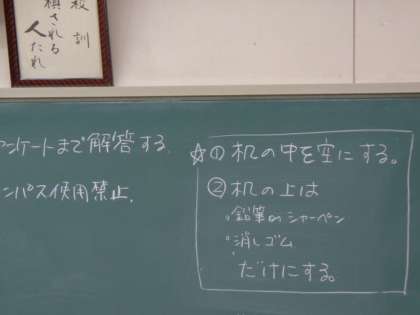 校訓
頼される
人たれ
ンケートまで解答する.
ンパス使用禁止.
☆① 机の中を空にする。
② 机の上は
・鉛筆のシャーペン
・消しゴム
だけにする。